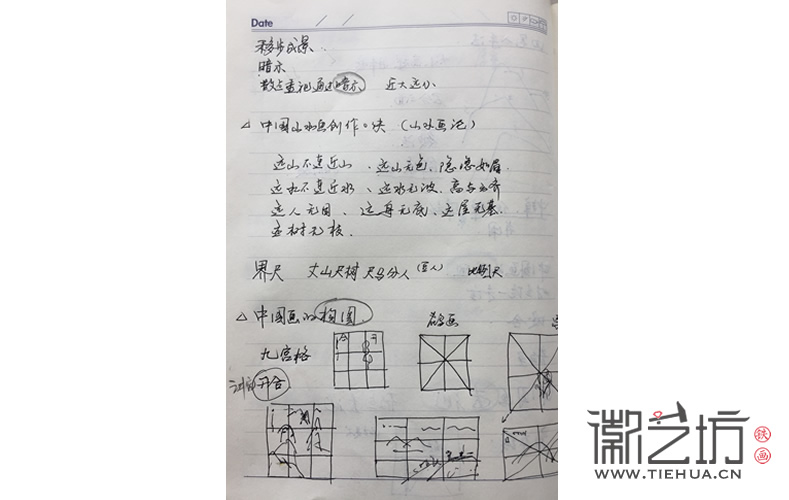 Date
移步成景
暗示
散点透视通过暗示 近大远小
△中国山水画创作口决 (山水画论)
远山不连近山、远山无色,隐隐如眉
远水不连近水、远水无波,高与云齐
远人无目、远舟无底、远屋无基
远树无枝.
界尺 丈山尺树 尺马分人 (豆人) 比例尺
△中国画的构图
九宫格
开合
徽艺坊
铁画
WWW.TIEHUA.CN